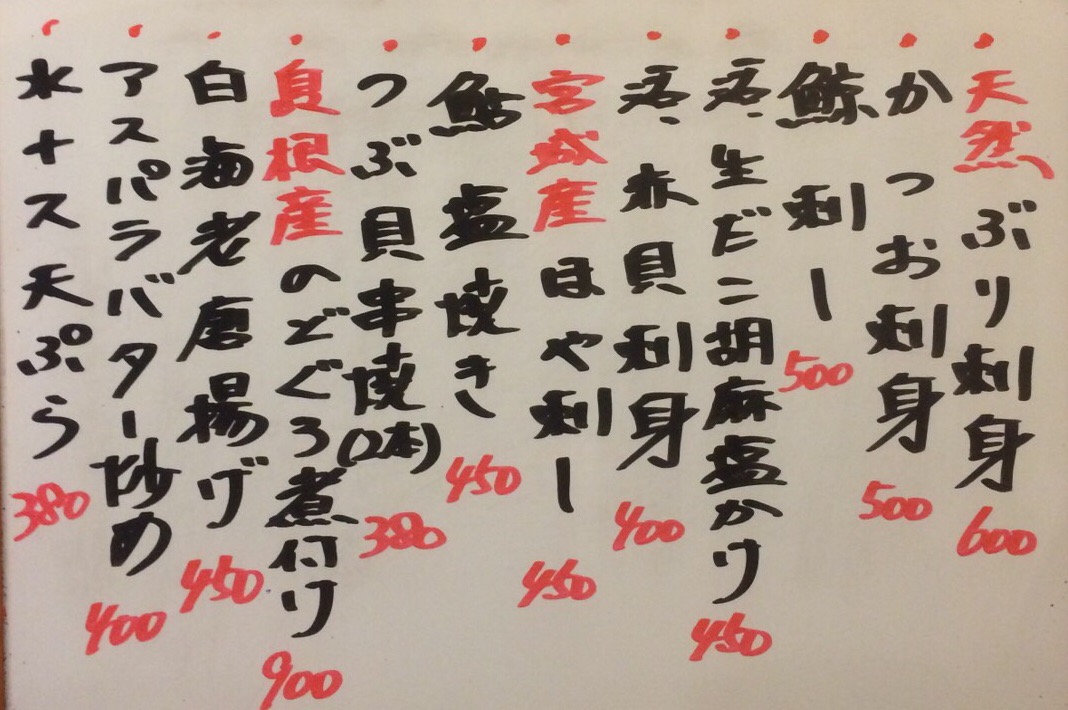 天然ぶり刺身 600
かつお刺身 500
鯨 刺し 500
生だこ胡麻塩かけ 450
赤貝刺身 400
宮城産ほや刺し 450
鮎 塩焼き 450
つぶ貝串焼(2本) 380
島根産のどぐろ煮付け 900
白海老唐揚げ 450
アスパラバター炒め 400
水ナス天ぷら 380